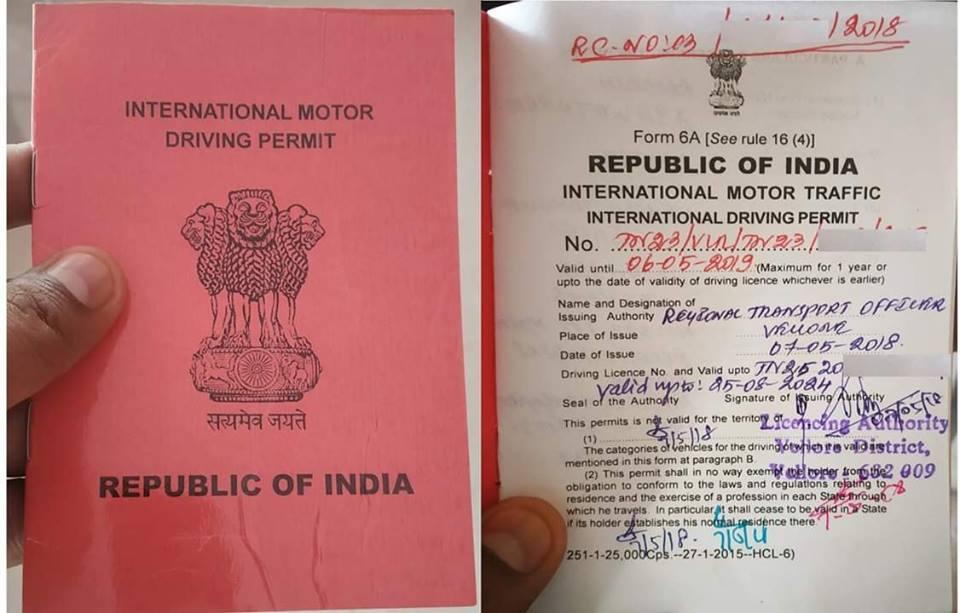 INTERNATIONAL MOTOR
DRIVING PERMIT
सत्यमेव जयते
REPUBLIC OF INDIA
RC-NO:03 / /2018
Form 6A [See rule 16 (4)]
REPUBLIC OF INDIA
INTERNATIONAL MOTOR TRAFFIC
INTERNATIONAL DRIVING PERMIT
No. TN23/VLR/TN23/
Valid until 06-05-2019 (Maximum for 1 year or
upto the date of validity of driving licence whichever is earlier)
Name and Designation of
Issuing Authority REGIONAL TRANSPORT OFFICER
Place of Issue VELLORE
Date of Issue 07-05-2018.
Driving Licence No. and Valid upto TN25 20
Valid upto: 25-08-2024
Seal of the Authority Signature of Issuing Authority
This permits is not valid for the territory of
Licencing Authority
(1)
The categories of vehicles for the driving of which it is valid are
Vellore District,
mentioned in this form at paragraph B.
(2) This permit shall in no way exempt the holder from the
Vellore 632 009
obligation to conform to the laws and regulations relating to
residence and the exercise of a profession in each State through
which he travels. In particular it shall cease to be valid in a State
if its holder establishes his normal residence there.
251-1-25,000Cps.--27-1-2015--HCL-6)